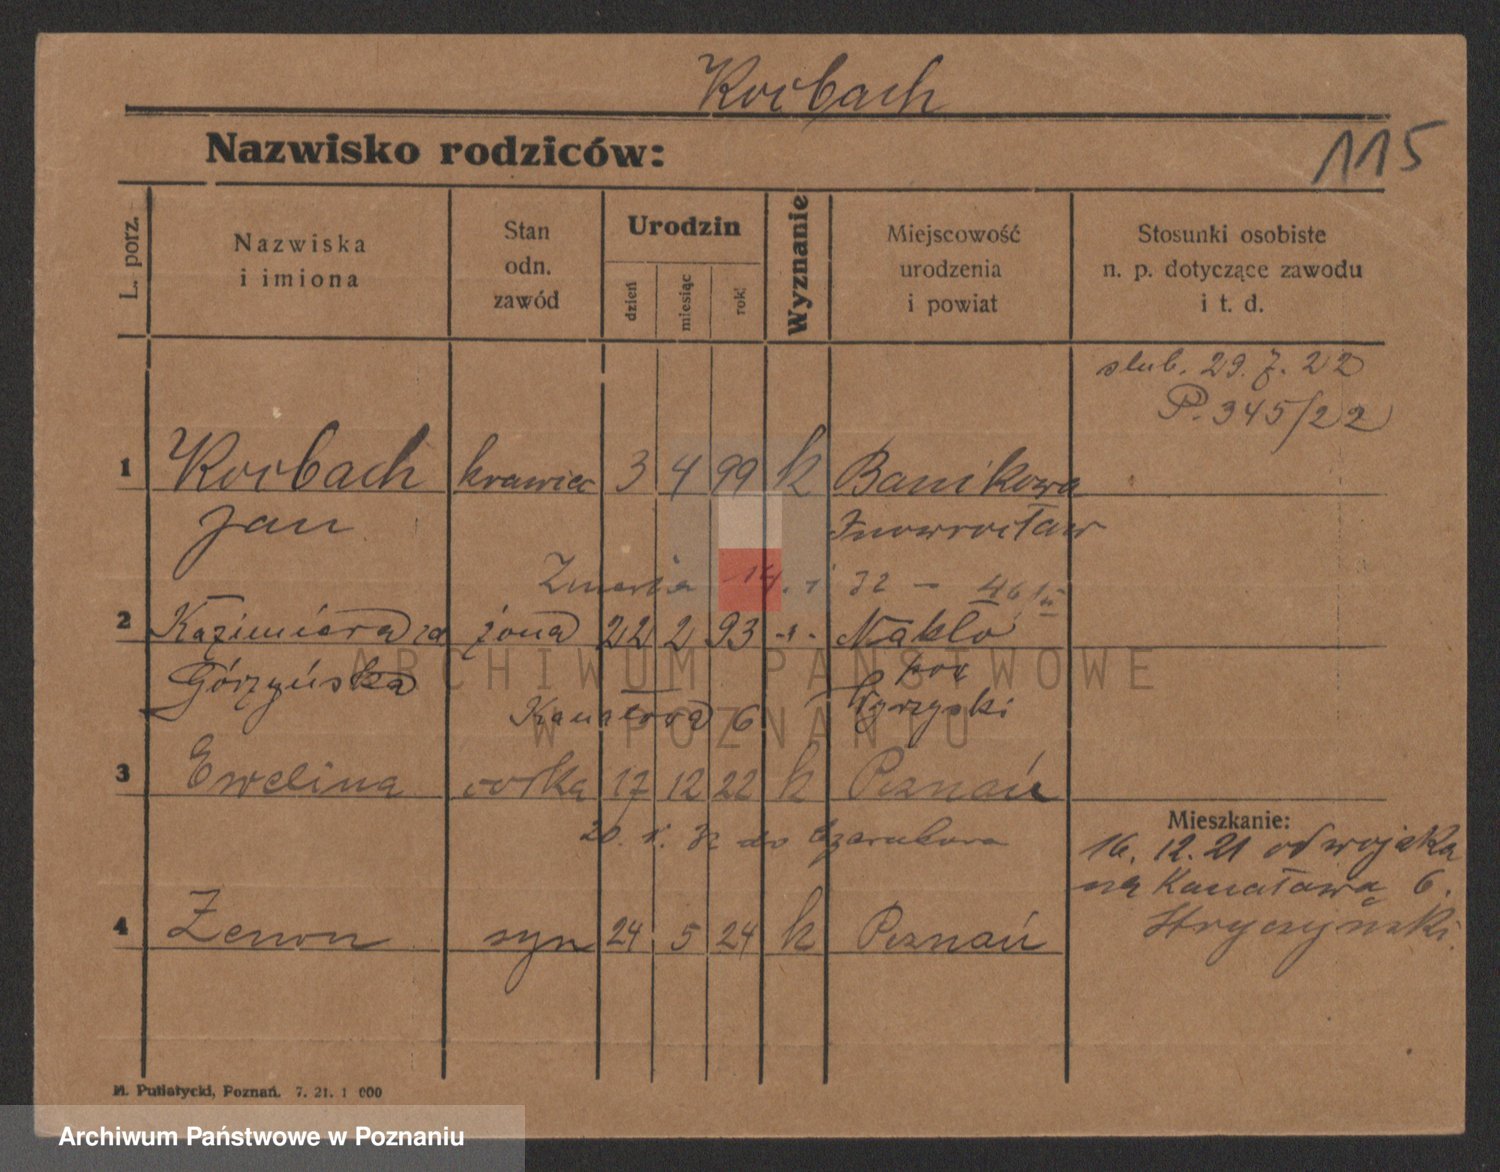 Korbach
Nazwisko rodziców:
115
L. porz.
Nazwiska
i imiona
Stan
odn.
zawód
Urodzin
dzień
miesiąc
rok!
Wyznanie
Miejscowość
urodzenia
i powiat
Stosunki osobiste
n. p. dotyczące zawodu
i t. d.
slub. 29. 7. 22
P. 345/22
1 Korbach krawiec 3 4 99 k
Jan Inowrocław
Zmarła 14. 1 32 –
2 Kazimiera za żona 22 2 93 -"- Nakło
Górzyńska pow
Kanałowa 6 Wyrzyski
3 Ewelina córka 17 12 22 k Poznań
20. 32 do Czarnkowa
Mieszkanie:
16. 12. 21 od wojska
na Kanałową 6.
4 Zenon syn 24 5 24 k Poznań
M. Putiatycki, Poznań. 7. 21. 1 000
ARCHIWUM PAŃSTWOWE
W POZNANIU
Archiwum Państwowe w Poznaniu